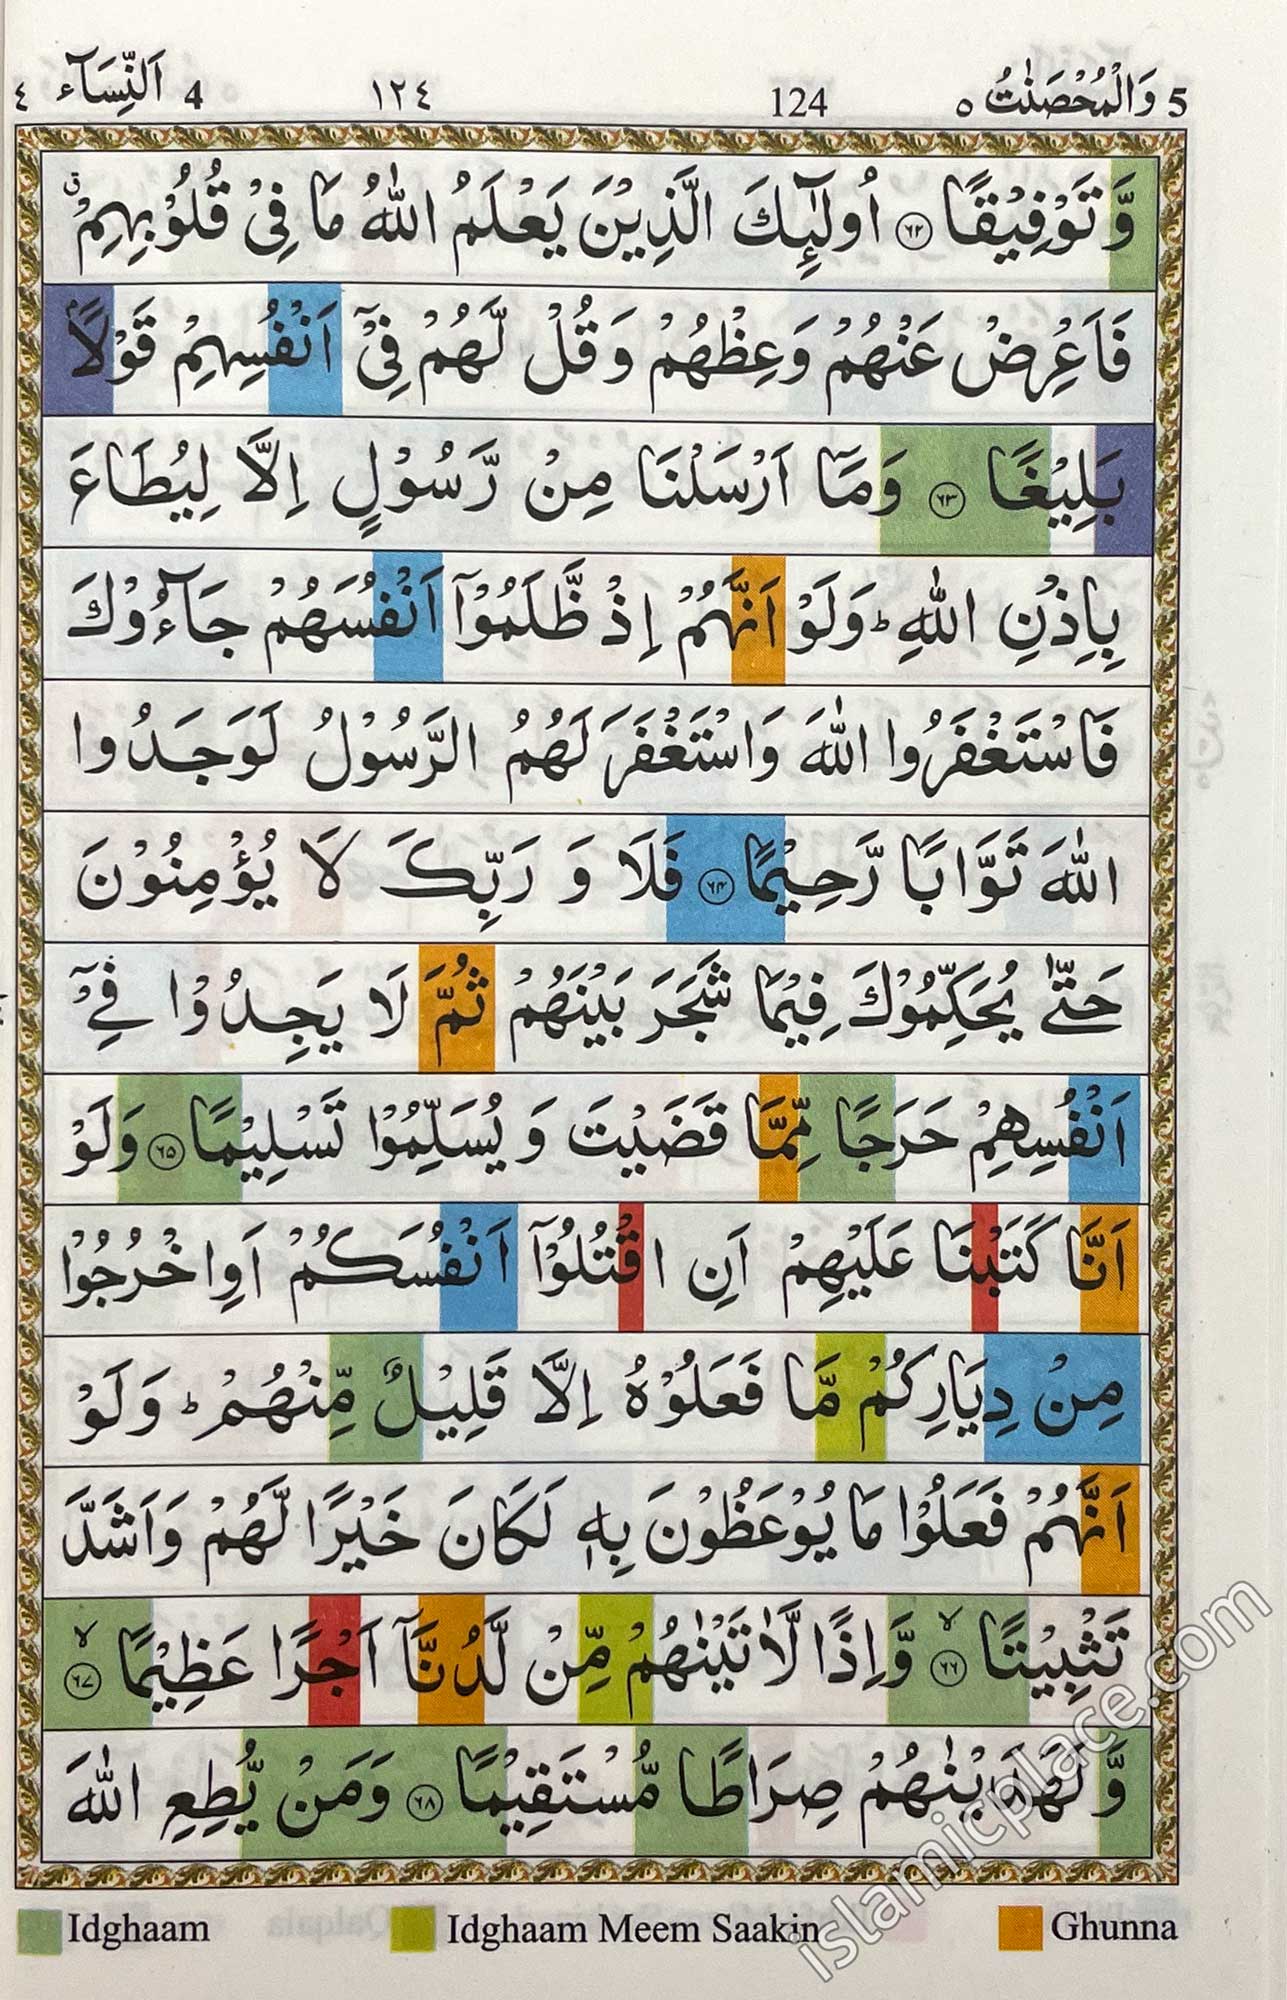 5 وَالْمُحْصَنٰتُ ٥ 124 ١٢٤ 4 اَلنِّسَآء ٤
وَّ تَوْفِيْقًا ۝٦٢ اُولٰٓئِكَ الَّذِيْنَ يَعْلَمُ اللّٰهُ مَا فِيْ قُلُوْبِهِمْ ۗ
فَاَعْرِضْ عَنْهُمْ وَعِظْهُمْ وَ قُلْ لَّهُمْ فِيْٓ اَنْفُسِهِمْ قَوْلًاۢ
بَلِيْغًا ۝٦٣ وَمَآ اَرْسَلْنَا مِنْ رَّسُوْلٍ اِلَّا لِيُطَاعَ
بِاِذْنِ اللّٰهِ ؕ وَلَوْ اَنَّهُمْ اِذْ ظَّلَمُوْٓا اَنْفُسَهُمْ جَآءُوْكَ
فَاسْتَغْفَرُوا اللّٰهَ وَاسْتَغْفَرَ لَهُمُ الرَّسُوْلُ لَوَجَدُوا
اللّٰهَ تَوَّابًا رَّحِيْمًا ۝٦٤ فَلَا وَ رَبِّكَ لَا يُؤْمِنُوْنَ
حَتّٰى يُحَكِّمُوْكَ فِيْمَا شَجَرَ بَيْنَهُمْ ثُمَّ لَا يَجِدُوْا فِيْٓ
اَنْفُسِهِمْ حَرَجًا مِّمَّا قَضَيْتَ وَ يُسَلِّمُوْا تَسْلِيْمًا ۝٦٥ وَلَوْ
اَنَّا كَتَبْنَا عَلَيْهِمْ اَنِ اقْتُلُوْٓا اَنْفُسَكُمْ اَوِ اخْرُجُوْا
مِنْ دِيَارِكُمْ مَّا فَعَلُوْهُ اِلَّا قَلِيْلٌ مِّنْهُمْ ؕ وَلَوْ
اَنَّهُمْ فَعَلُوْا مَا يُوْعَظُوْنَ بِهٖ لَكَانَ خَيْرًا لَّهُمْ وَاَشَدَّ
تَثْبِيْتًا ۙ۝٦٦ وَّاِذًا لَّاٰتَيْنٰهُمْ مِّنْ لَّدُنَّآ اَجْرًا عَظِيْمًا ۙ۝٦٧
وَّ لَهَدَيْنٰهُمْ صِرَاطًا مُّسْتَقِيْمًا ۝٦٨ وَمَنْ يُّطِعِ اللّٰهَ
Idghaam Idghaam Meem Saakin Ghunna
islamicplace.com